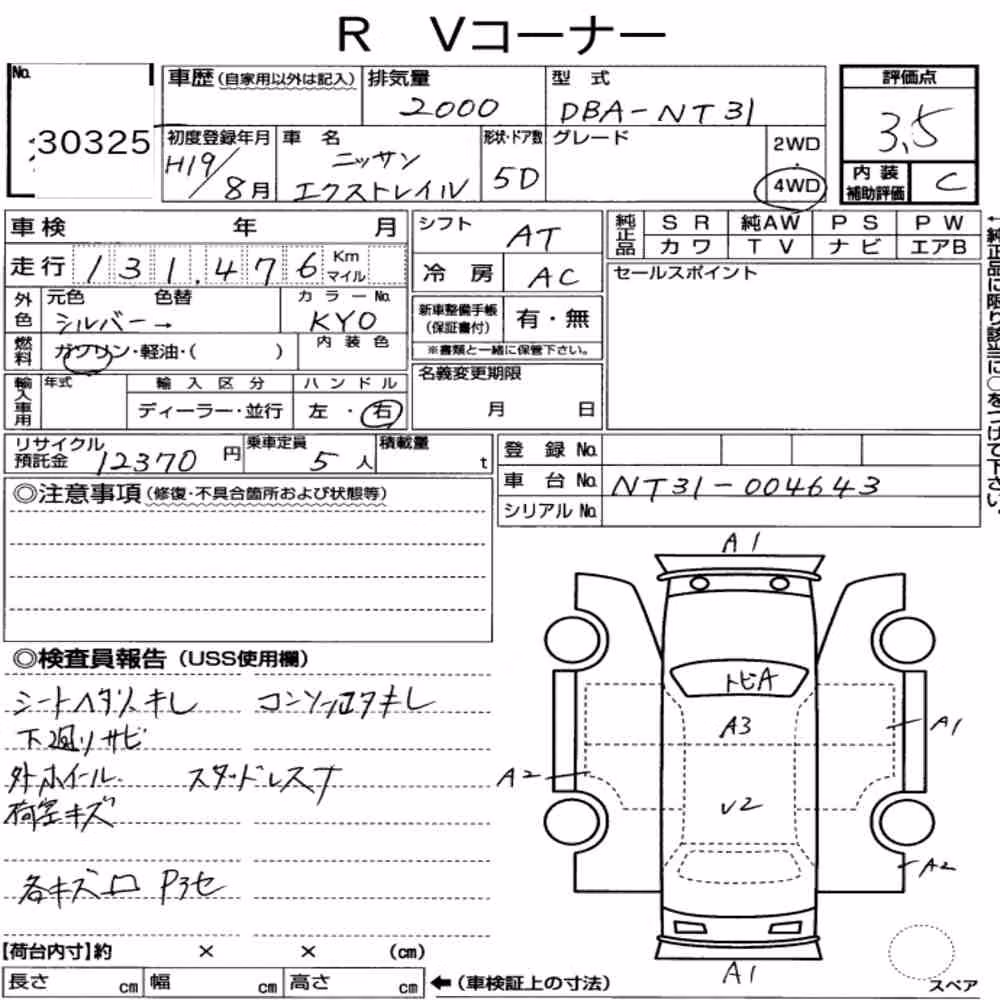 R Vコーナー
No.
30325
車歴(自家用以外は記入)
排気量
2000
型式
DBA-NT31
評価点
3.5
初度登録年月
H19/8月
車名
ニッサン
エクストレイル
形状・ドア数
5D
グレード
2WD
・
4WD
内装
補助評価
C
車検 年 月
シフト
AT
純正品
SR 純AW PS PW
カワ TV ナビ エアB
走行 131,476 Km マイル
冷房
AC
セールスポイント
←純正品に限り該当に○をつけて下さい。
外色
元色 色替
シルバー→
カラーNo.
KY0
新車整備手帳
(保証書付)
有・無
※書類と一緒に保管下さい。
燃料
ガソリン・軽油・( )
内装色
輸入車用
年式
輸入区分
ディーラー・並行
ハンドル
左・右
名義変更期限
月 日
リサイクル
預託金 12370 円
乗車定員
5人
積載量
t
登録No.
車台No. NT31-004643
シリアルNo.
◎注意事項(修復・不具合箇所および状態等)
◎検査員報告(USS使用欄)
シートヘタリ、キレ
下廻りサビ
外ホイール、スタッドレスナ
荷室キズ
A1
トビA
A3
A1
A2
V2
A2
A1
【荷台内寸】約 × × (cm)
長さ cm 幅 cm 高さ cm
←(車検証上の寸法)
スペア